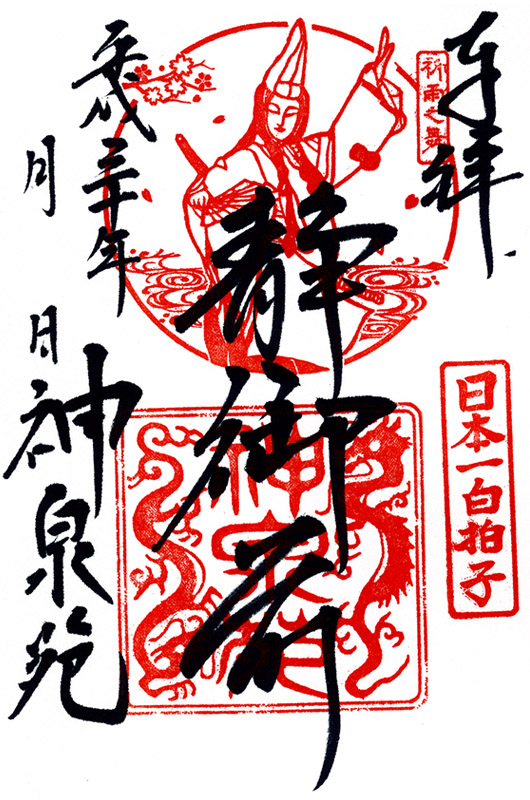 奉拝
祈雨之舞
日本一白拍子
静御前
神泉苑
平成三十年
月
日
神泉苑